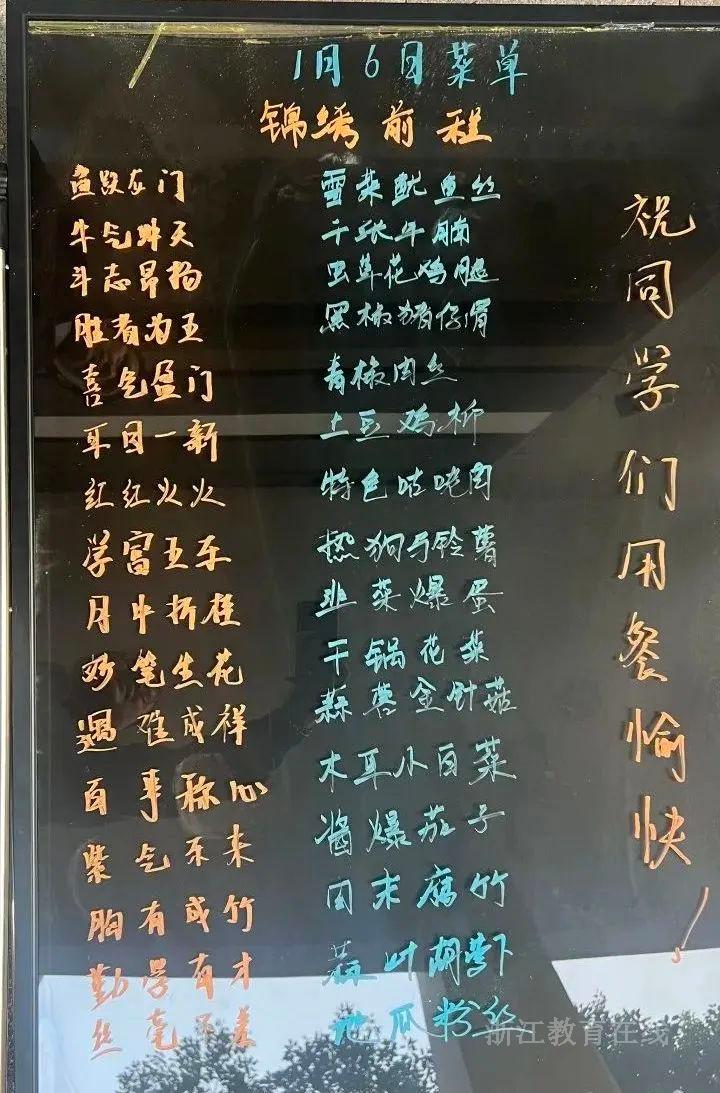 1月6日菜单
锦绣前程
鱼跃龙门 雪菜鱿鱼丝
牛气冲天 千张牛腩
斗志昂扬 虫草花鸡腿
胜者为王 黑椒猪仔骨
喜气盈门 青椒肉丝
耳目一新 土豆鸡柳
红红火火 特色咕咾肉
学富五车 热狗马铃薯
月中折桂 韭菜爆蛋
妙笔生花 干锅花菜
遇难成祥 蒜蓉金针菇
百事称心 木耳小白菜
紫气东来 酱爆茄子
胸有成竹 肉末腐竹
勤学有才 蒜叶胡萝卜
丝毫不差 地瓜粉丝
祝同学们用餐愉快！
浙江教育在线